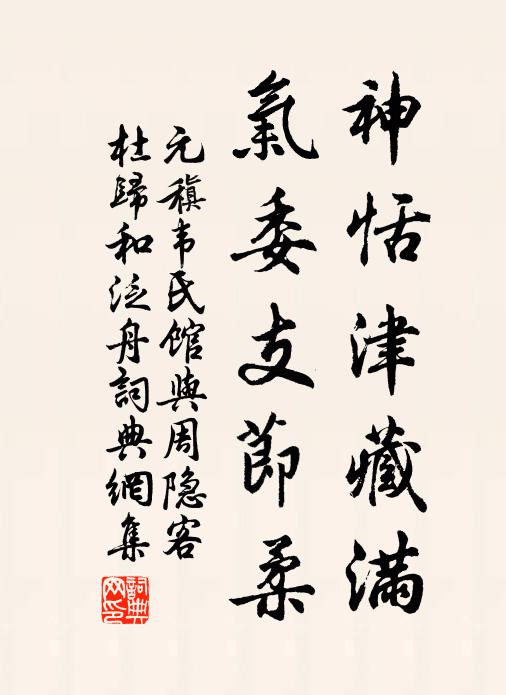 神恬津藏滿
氣委支節柔
元稹韦氏館與周隐客
杜歸和泛舟詞典網集
詞典
网印